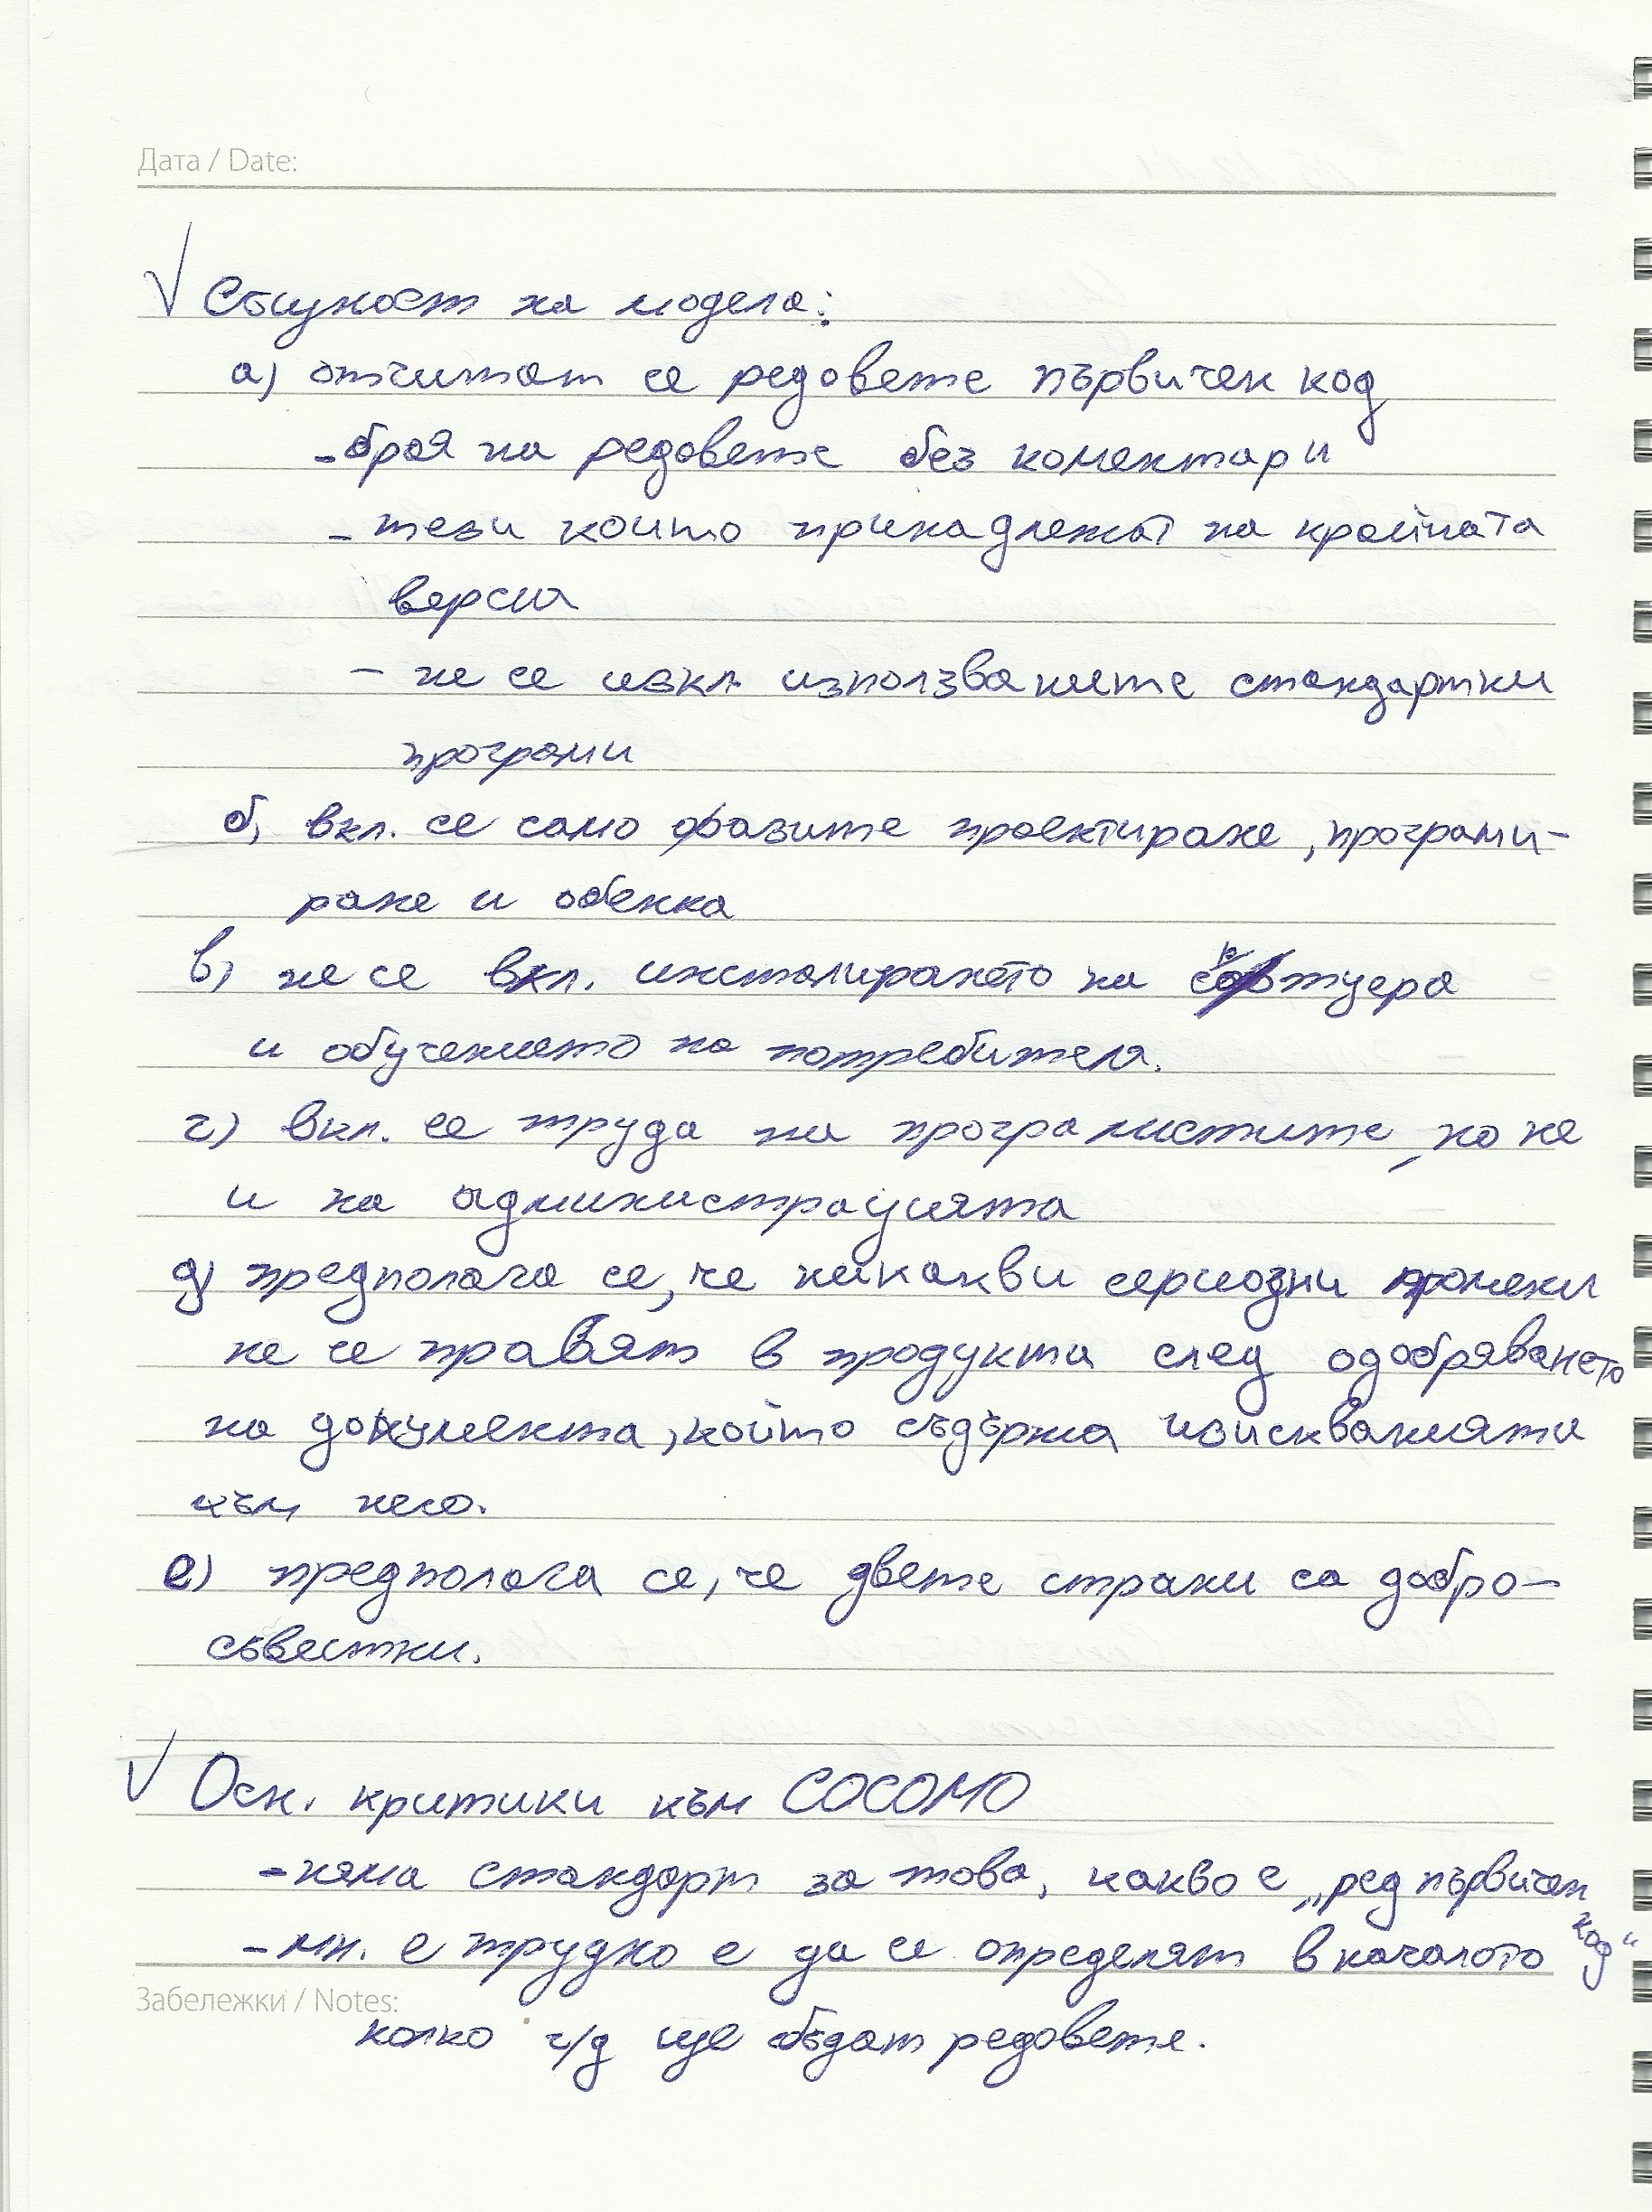 Дата / Date:
√ Същност на модела:
а) отчитат се редовете първичен код
- броя на редовете без коментари
- тези които принадлежат на крайната
версия
- не се изкл. използваните стандартни
програми
б) вкл. се само фазите проектиране, програми-
ране и оценка
в) не се вкл. инсталирането на софтуера
и обучението на потребителя.
г) вкл. се труда на програмистите, но не
и на администрацията
д) предполага се, че никакви сериозни промени
не се правят в продукта след одобряването
на документа, който съдържа изискванията
към него.
е) предполага се, че двете страни са добро-
съвестни.
√ Осн. критики към COCOMO
- няма стандарт за това, какво е „ред първичен
код“
- мн. е трудно е да се определят в началото
Забележки / Notes:
колко ч/д ще бъдат редовете.